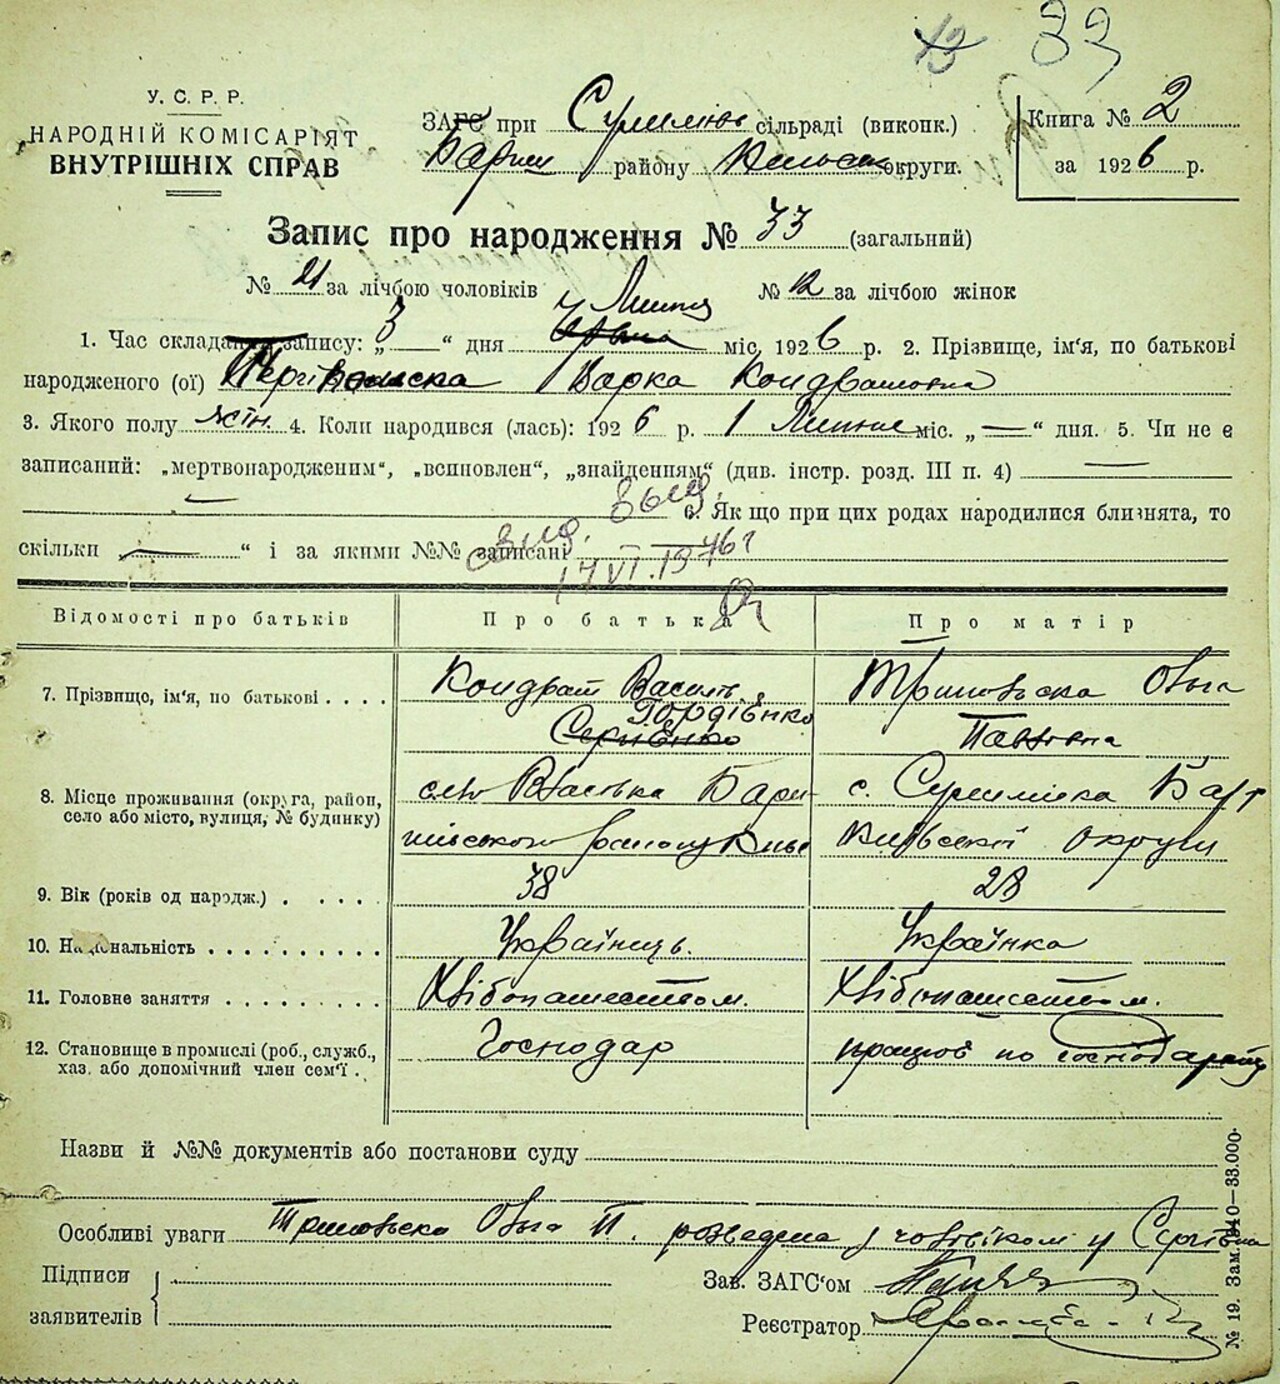 33
У. С. Р. Р.
НАРОДНІЙ КОМІСАРІЯТ
ВНУТРІШНІХ СПРАВ
ЗАГС при сільраді (виконк.)
району округи.
Книга № 2
за 1926 р.
Запис про народження № 33 (загальний)
№ 21 за лічбою чоловіків № 12 за лічбою жінок
Липня
1. Час складання запису: „ 3 “ дня міс. 1926 р. 2. Прізвище, ім'я, по батькові
народженого (ої) Варка Кондратовна
3. Якого полу жін. 4. Коли народився (лась): 1926 р. 1 Липня міс. „ — “ дня. 5. Чи не є
записаний: „мертвонародженим“, „всиновлен“, „знайденням“ (див. інстр. розд. III п. 4) —
— 6. Як що при цих родах народилися близнята, то
скільки — “ і за якими №№ записані —
17 VI. 1976 г
Відомості про батьків Про батька Про матір
7. Прізвище, ім'я, по батькові . . . . Кондрат Василь. Ольга
Гордієнко
Сергієнко Павлівна
8. Місце проживання (округа, район,
село або місто, вулиця, № будинку)
село Власівка Бари с. Сулимівка Бар
шівського району Київ Київської округи
9. Вік (років од народж.) . . . . . 38 28
10. Національність . . . . . . . . . . Українець. Українка
11. Головне заняття . . . . . . . . . Хлібопашеством. Хлібопашеством.
12. Становище в промислі (роб., служб.,
хаз. або допомічний член сем'ї .
Господар працює по господарству
Назви й №№ документів або постанови суду
Особливі уваги Ольга П. розведена з чоловіком
Підписи
заявителів
Зав. ЗАГС'ом
Реєстратор
№ 19. Зам. 1940—33.000.